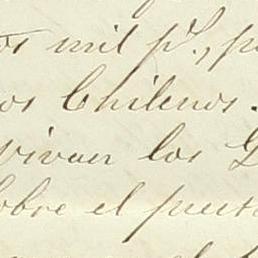 os mil p.^s, p
os Chilenos.
vivan los
sobre el puest